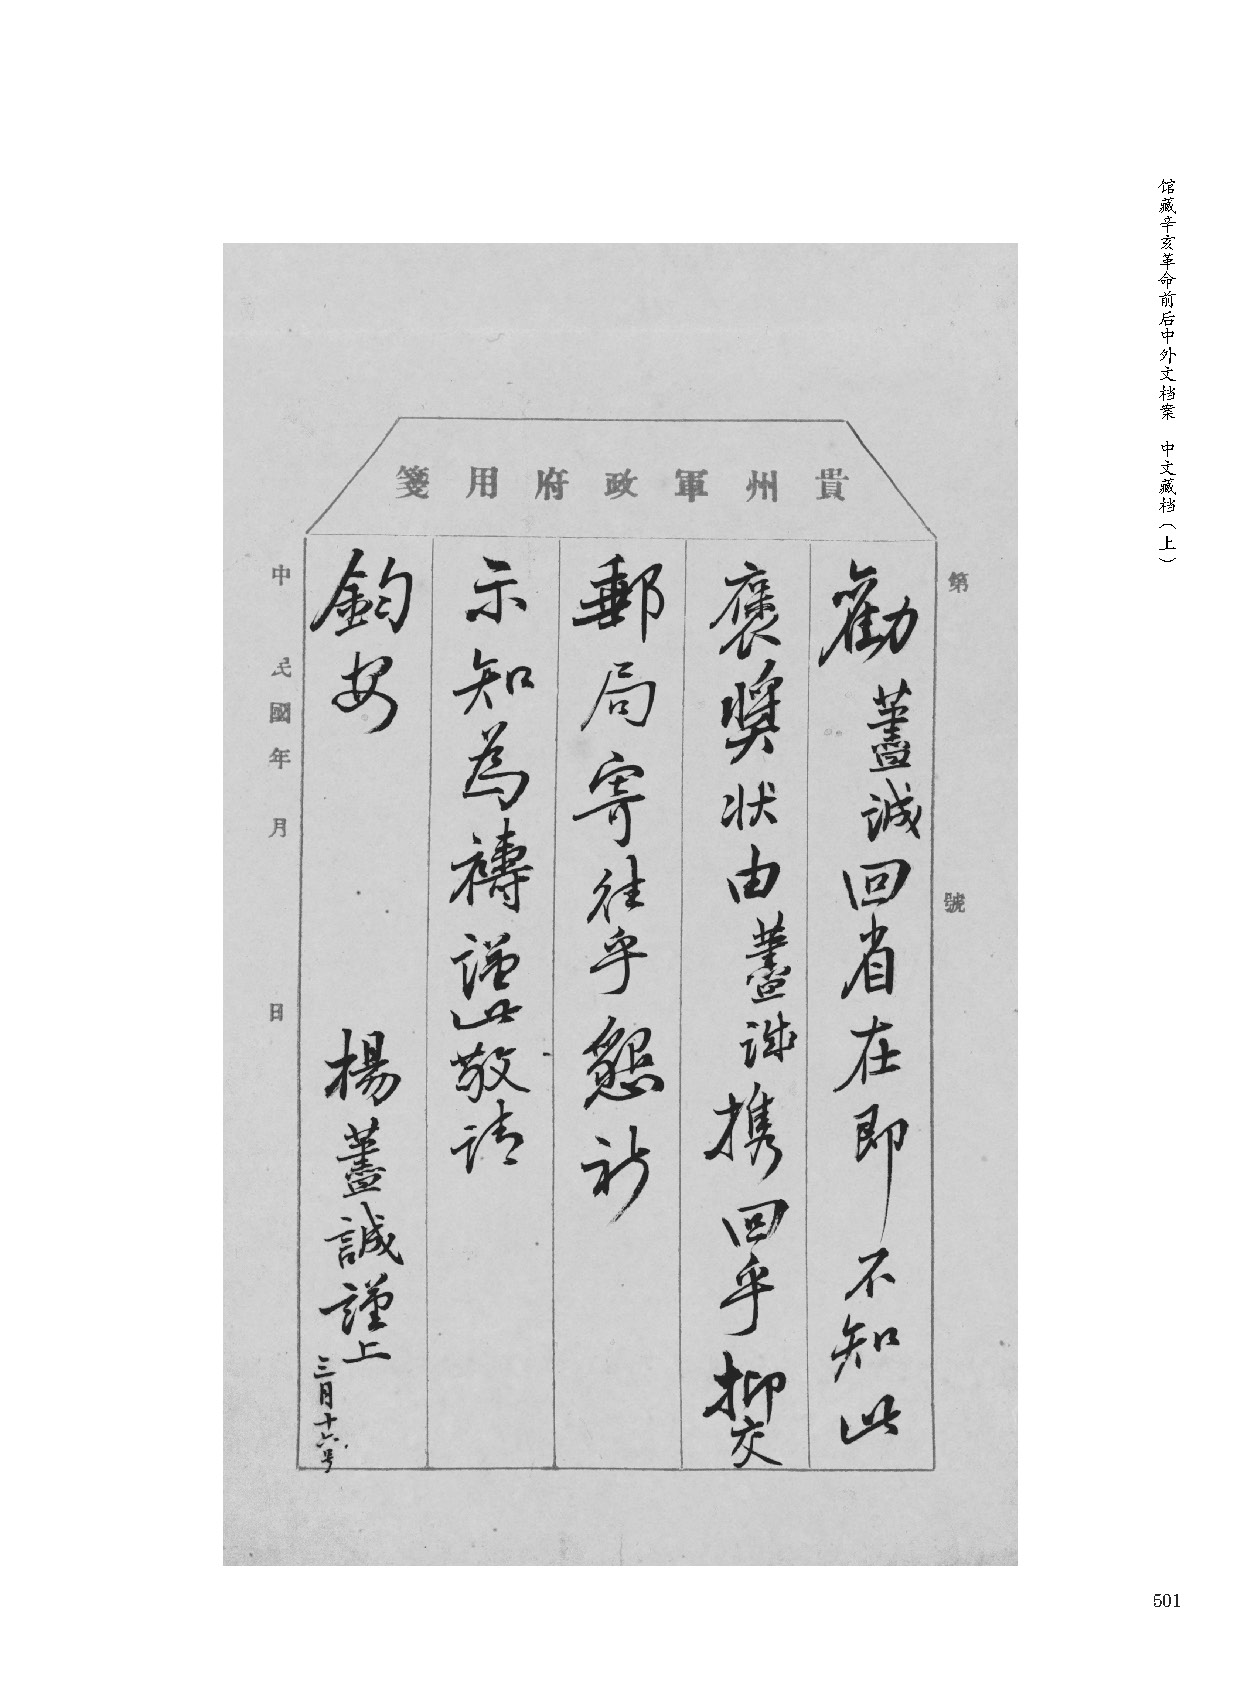 馆藏辛亥革命前后中外文档案　中文藏档（上）
貴州軍政府用箋
第　號
勸藎誠回省在即不知此
褒獎狀由藎誠携回乎抑交
郵局寄往乎懇祈
示知為禱謹此敬請
鈞安
楊藎誠謹上
三月十六号
中　民國年　月　日
501